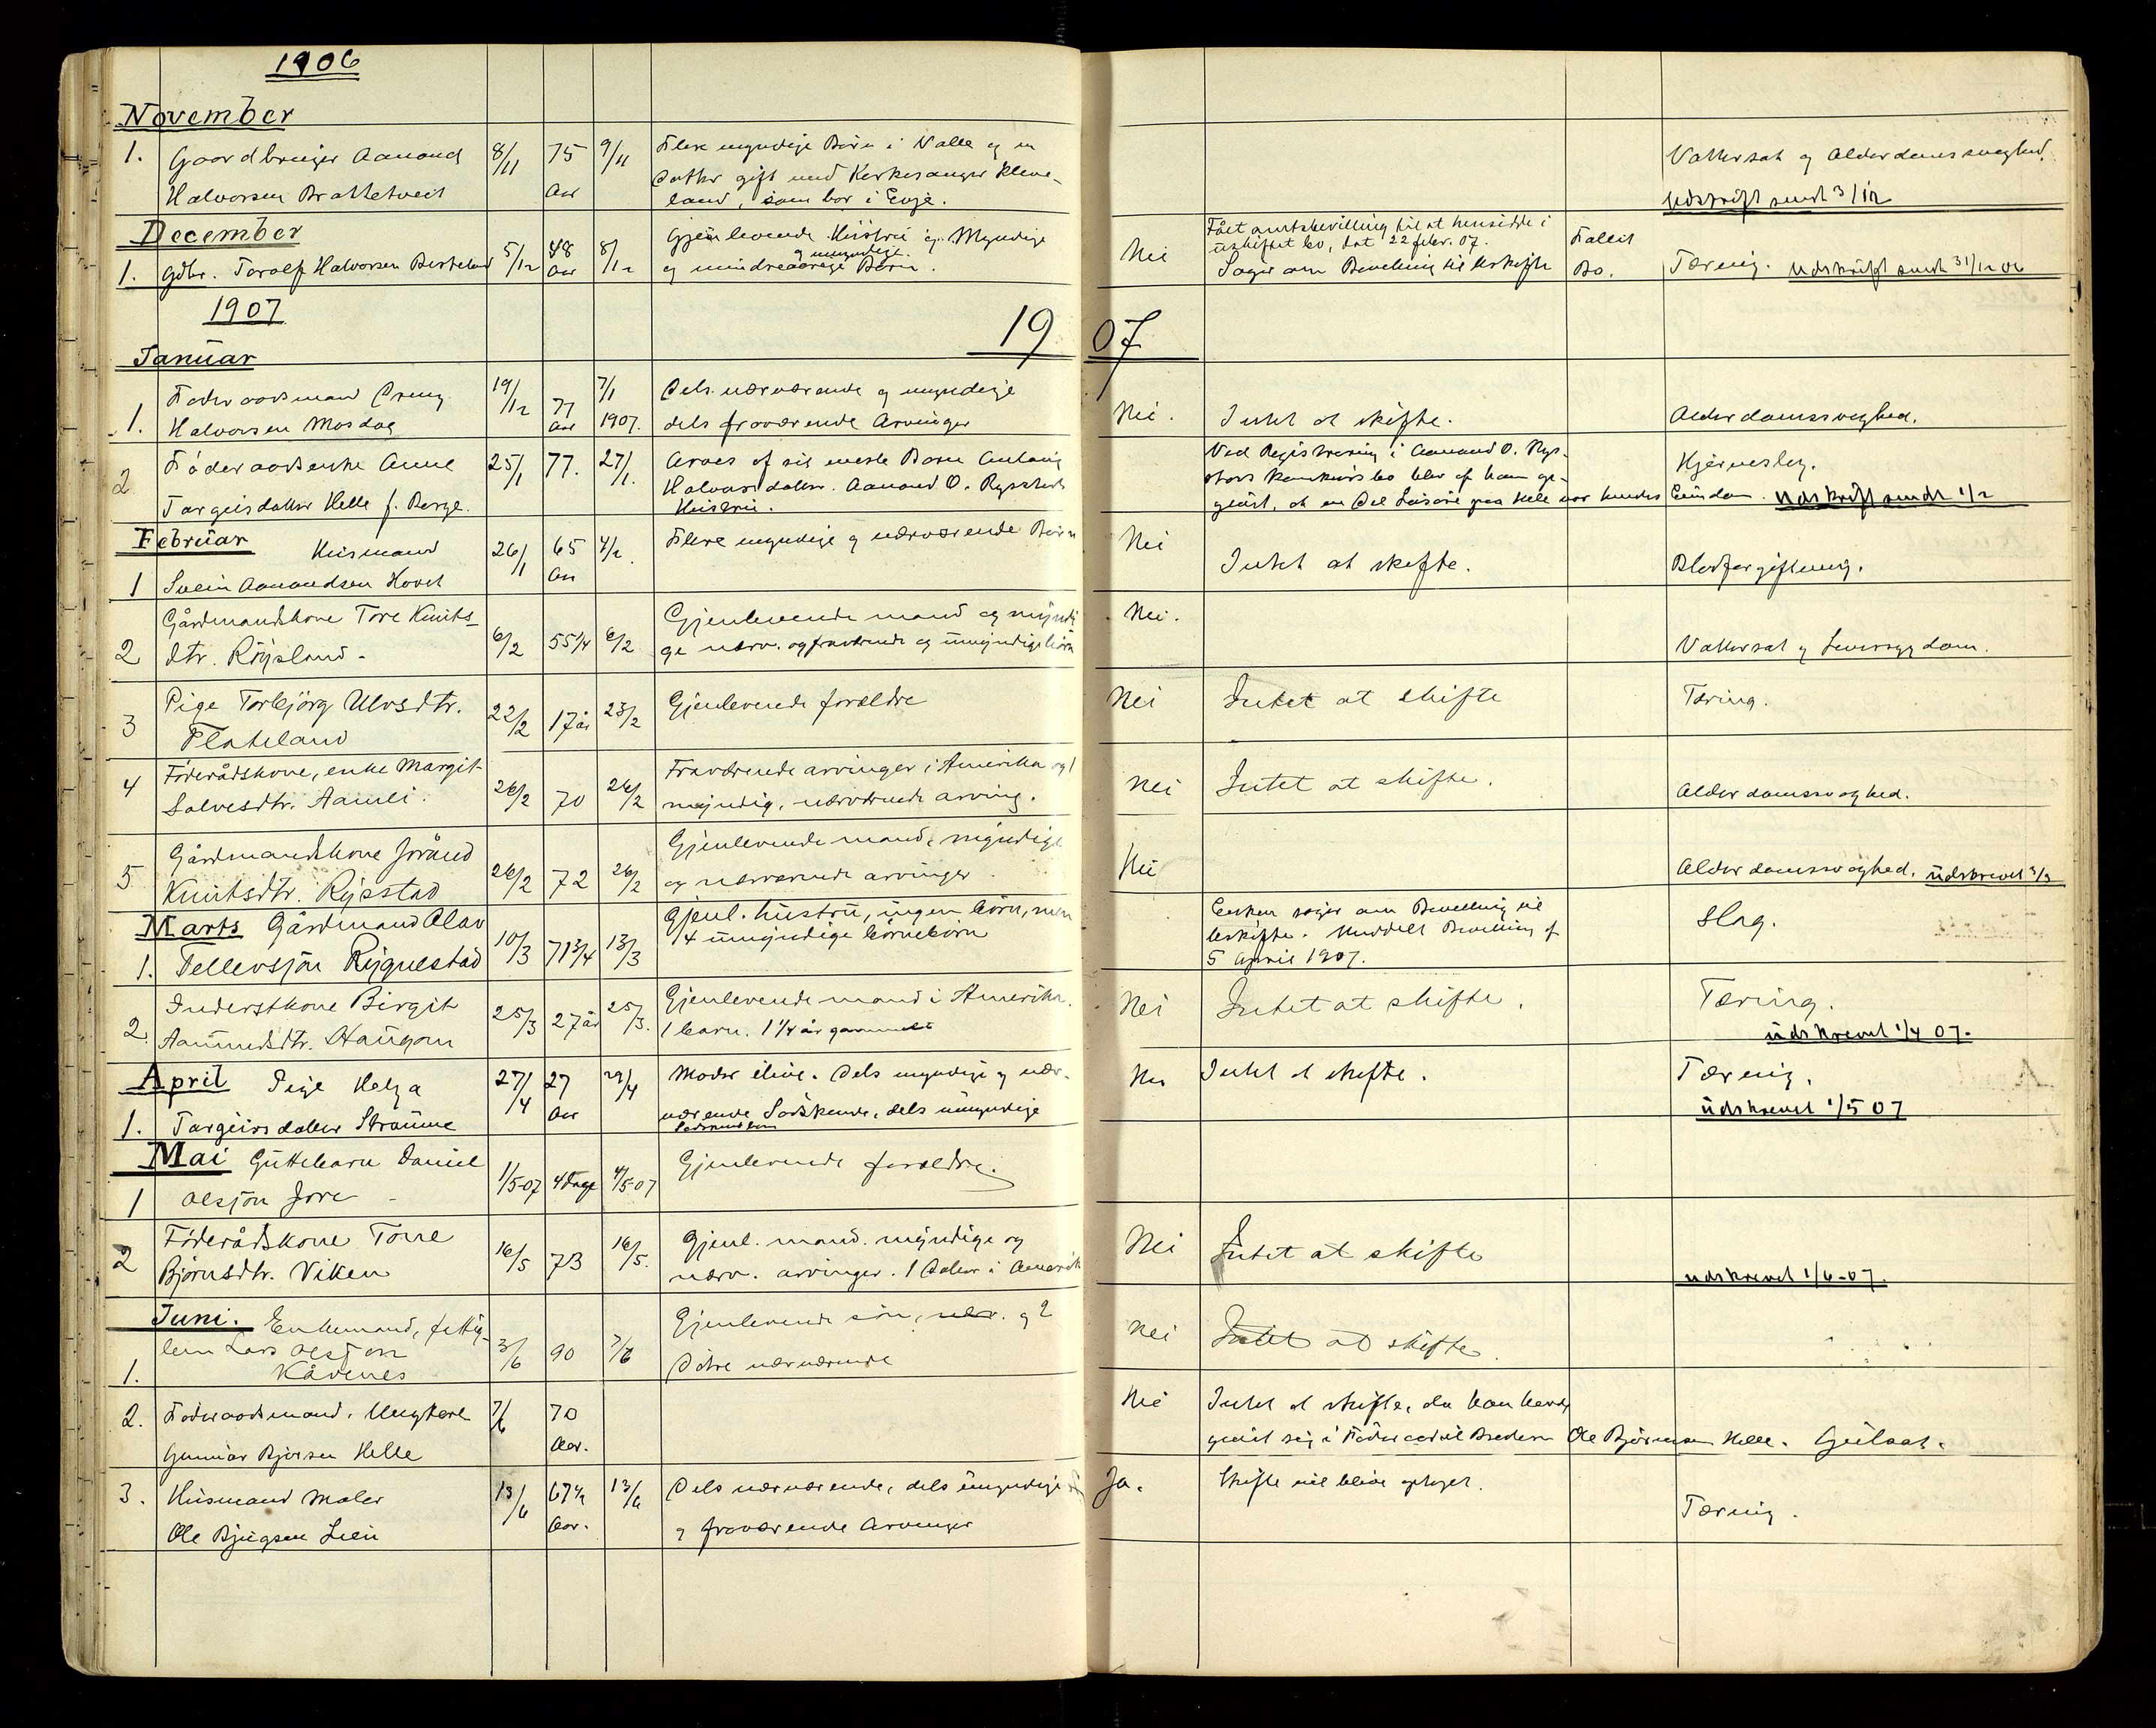 1906
November
1. Gaardbruger Aanond 8/11 75 9/11 Flere myndige Børn i Valle og en
Halvorsen Brattetveit Aar Datter gift med Kirkesanger Kleve-
land, som bor i Evje.
December
1. gdbr. Taralf Halvorsen Berkeland 5/12 48 Aar 8/12 Gjenlevende Hüstrü og Myndige
og mindreaarige Børn.
1907
19
Januar
1. Føderaadsmand Dreng 19/12 77 Aar 7/1 1907. Dels nærværende og myndige
Halvorsen Mosdøl dels fraværende Arvinger
2 Føderaadsenke Anne 25/1 77. 27/1. Arves af sit eneste Barn
Targeisdatter Helle f. Berge. Halvorsdatter. Aanond O. Rysstads
Hüstrü.
Februar Hüsmand 26/1 65 Aar 4/2. Flere myndige og nærværende Børn
1 Svein Aanondsen Hovet
2 Gårdmandskone Tore Knüts- 6/2 55 1/4 6/2 Gjenlevende mand og myndi
dtr. Røysland - ge nærv. og fravær­ende og ümyndige børn
3 Pige Torbjörg Ulvsdtr. 22/2 17 år 23/2 Gjenlevende forældre
Flateland
4 Föderådskone, enke Margit 26/2 70 26/2 Fraværende arvinger i Amerika og 1
Salvesdtr. Aamli. myndig, nærværende arving.
5 Gårdmandskone Joränd 26/2 72 26/2 Gjenlevende mand, myndige
Knütsdtr. Rysstad og nærværende arvinger
Marts Gårdmand Olav 10/3 71 3/4 13/3 Gjenl. hüstrü, ingen børn, men
1. Tellevsjön Rygnestad 4 ümyndige børnebørn
2. Inderstkone Birgit 25/3 27 år 25/3. Gjenlevende mand i Amerika.
Aanundsdtr. Haügom 1 barn. 1 1/4 år gammelt
April Pige Helga 27/4 27 Aar 29/4 Moder ilive. Dels myndige og nær-
1. Targeirsdatter Strømme værende Sødskende, dels ümyndige
Sødskendebørn
Mai Güttebarn Daniel 1/5-07 4 Dage 4/5-07 Gjenlevende forældre.
1 Olsjön Jore -
2 Föderådskone Tone 16/5 73 16/5. Gjenl. mand. myndige og
Björnsdtr. Viken nærv. arvinger. 1 Datter i Amerik
Juni. Enkemand, fattig- 3/6 90 7/6 Gjenlevende søn, nærv. og 2
lem Lars Olsjon Døtre nærværende
1. Kåvenes
2. Føderaadsmand, Ungkarl 7/6 70 Aar.
Gunnar Bjørsen Helle
3. Hüsmand Maler 13/6 67 1/2 Aar. 13/6 Dels nærværende, dels ümyndige
Ole Bjugsen Lien og fraværende Arvinger
Vattersot og Alderdomssvaghed.
Udskrift sendt 3/12
Nei Fået amtsbevilling til at hensidde i
üskiftet bo, dat 22 febr. 07. Fallit
Søger om Bevilling til Uskifte Bo. Tæring. Udskrift sendt 31/12 06
07
Nei. Intet at skifte. Alderdomssvaghed.
Ved Registrering i Aanond O. Rys-
stads Konkürsbo blev af ham op-
givet, at en Del Løsøre paa Helle var hendes Eiendom. Udskrift sendt 1/2
Hjerneslag.
Nei Intet at skifte. Blodforgiftning.
Nei. Vattersot og Leversygdom.
Nei Intet at skifte Tæring.
Nei Intet at skifte. Alderdomssvaghed.
Nei Alderdomssvaghed. üdskrevet 3/3
Enken søger om Bevilling til
Uskifte. Meddelt Bevilling af
5 April 1907. Slag.
Nei Intet at skifte. Tæring.
üdskrevet 1/4 07.
Nei Intet at skifte. Tæring.
üdskrevet 1/5 07
Nei Intet at skifte
udskrevet 1/6-07.
Nei Intet at skifte
Nei Intet at skifte, da han havde
givet sig i Føderaad til Broderen Ole Bjørnsen Helle. Gülsot.
Ja. Skifte vil blive optaget. Tæring.